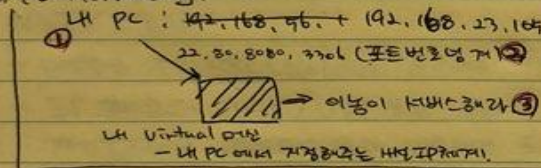 내 PC : 192.168.56.1 192.168.23.105
①
22.80.8080, 3306 (포트번호넘겨) ②
→ 이놈이 서비스해라 ③
내 Virtual 머신
- 내 PC에서 지정해주는 IP체계.